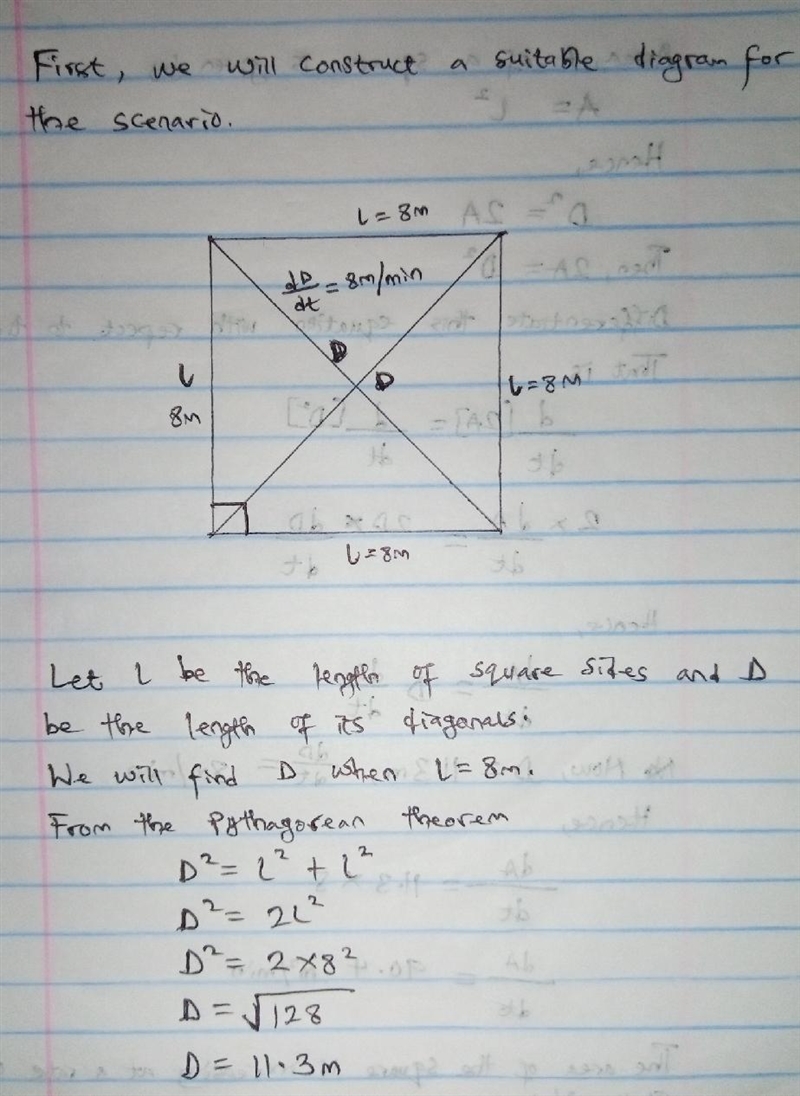 First, we will construct a suitable diagram for
the scenario.
L = 8m
dD/dt = 8m/min
D
D
L
8m
L = 8m
L = 8m
Let L be the length of square sides and D
be the length of its diagonals.
We will find D when L = 8m.
From the Pythagorean theorem
D² = L² + L²
D² = 2L²
D² = 2 × 8²
D = √128
D = 11.3m